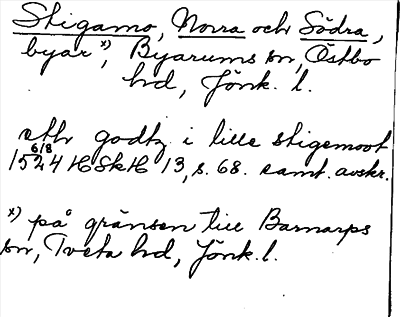 Stigamo, Norra och Södra,
byar x), Byarums sn, Östbo
hd, Jönk. l.
etth godtz i lille stigemoot
15 6/8 24 HSkH 13, s. 68. samt. avskr.
x) på gränsen till Barnarps
sn, Tveta hd, Jönk. l.